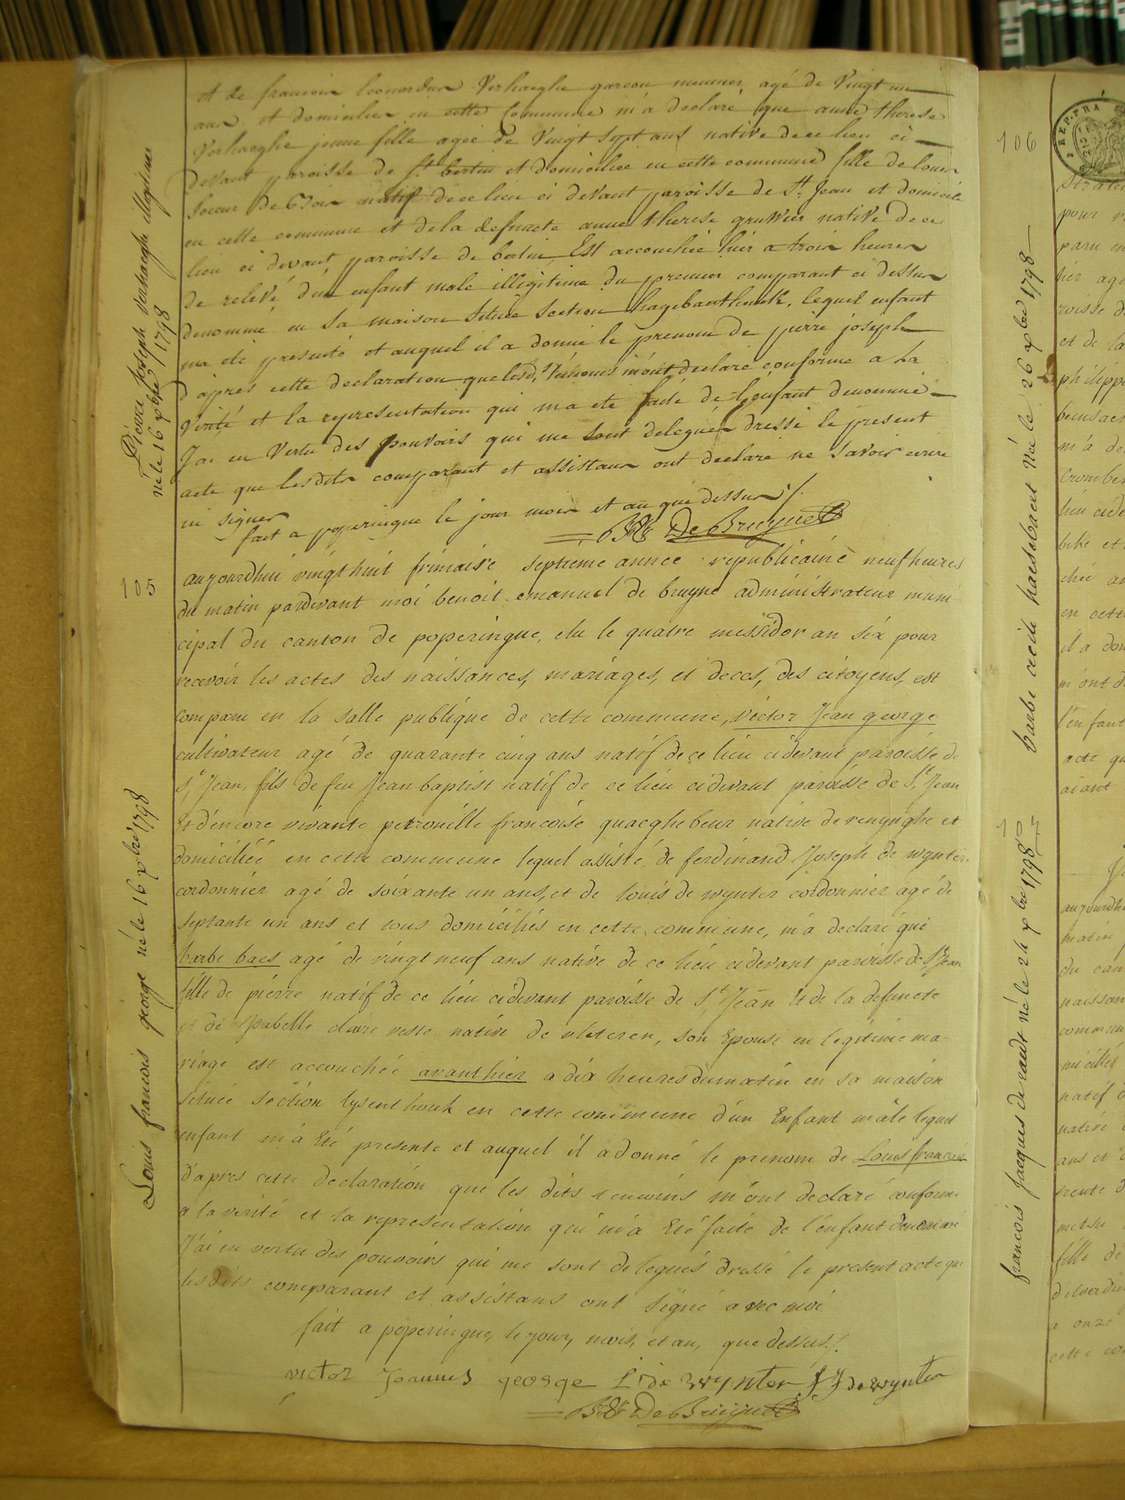 et de francois leonardus Verhaeghe garcon meunier agé de Vingt un
ans et domicilier en cette Commune m'a declaré que anne therese
Verhaeghe jeune fille agée de Vingt sept ans native de ce lieu ci
devant paroisse de St bertin et domiciliee en cette commune fille de louis
natif de ce lieu ci devant paroisse de St Jean et domicilié
en cette commune et de la defuncte anne therese gruwier native de ce
lieu ci devant paroisse de bertin Est accouchée hier a trois heures
de relevé d'un enfant male illigitime du premier comparant ci dessus
denommé en sa maison située section hagebanthouck, lequel enfant
ma eté presenté et auquel il a donné le prenom de pierre joseph
d'apres cette declaration que lesd. témouins m'ont declaré conforme a la
verité et la representation qui m'a eté faite de l'enfant denommé
J'ai en Vertu des pouvoirs qui me sont delegués dressé le present
acte que lesdits comparant et assistans ont declaré ne savoir ecrire
ni signer
fait a poperingue le jour mois et an que dessus
De Bruyne
Pierre joseph verhaeghe illigitime
né le 16 xbre 1798
105
aujourdhui vingt huit frimaire septieme année republicaine neuf heures
du matin pardevant moi benoit emanuel de bruyne administrateur muni
cipal du canton de poperingue, elu le quatre messidor an six pour
recevoir les actes des naissances, mariages, et deces, des citoyens, est
comparu en la salle publique de cette commune, victor Jean george
cultivateur agé de quarante cinq ans natif de ce lieu cidevant paroisse de
St Jean, fils de feu Jean baptist natif de ce lieu cidevant paroisse de St Jean
Et d'encore vivante petronille francoise quaeghebeur native de renynghe et
domiciliée en cette commune lequel assisté de ferdinand Joseph de wynter
cordonnier agé de soixante un ans, et de louis de wynter cordonnier agé de
septante un ans et tous domiciliés en cette commune, m'a declaré que
barbe baes agé de vingt neuf ans native de ce lieu cidevant paroisse de St Jean
fille de pierre natif de ce lieu cidevant paroisse de St Jean Et de la defuncte
et de Isabelle clare native de vleteren, son Epouse en legitime ma-
riage est accouchée avanthier a dix heures du matin en sa maison
située section lysenthouck en cette commune d'un Enfant mâle lequel
enfant m'a Eté presente et auquel il a donné le prenom de Louis francois
d'apres cette declaration que les dits temoins m'ont declaré conforme
a la verité et la representation qui m'a Eté faite de l'enfant denommé
J'ai en vertu des pouvoirs qui me sont delegués dressé le present acte que
les dits comparant et assistans ont signé avec moi
fait a poperingue, le jour, mois, et an, que dessus
victor Joannes george L de wynter f J de wynter
De Bruyne
Louis francois george né le 16 xbre 1798
106
barbe cecile haeselaert Née le 26 xbre 1798
francois Jacques né le 24 xbre 1798
REP. FRA
pour
et de la
philippe
lieu cide
en cette
il a don
m'ont d
l'enfant
acte qu
aiant
aujourdhu
matin
du can
naissan
commun
natif
native
ans et
fille de
a onze
cette co